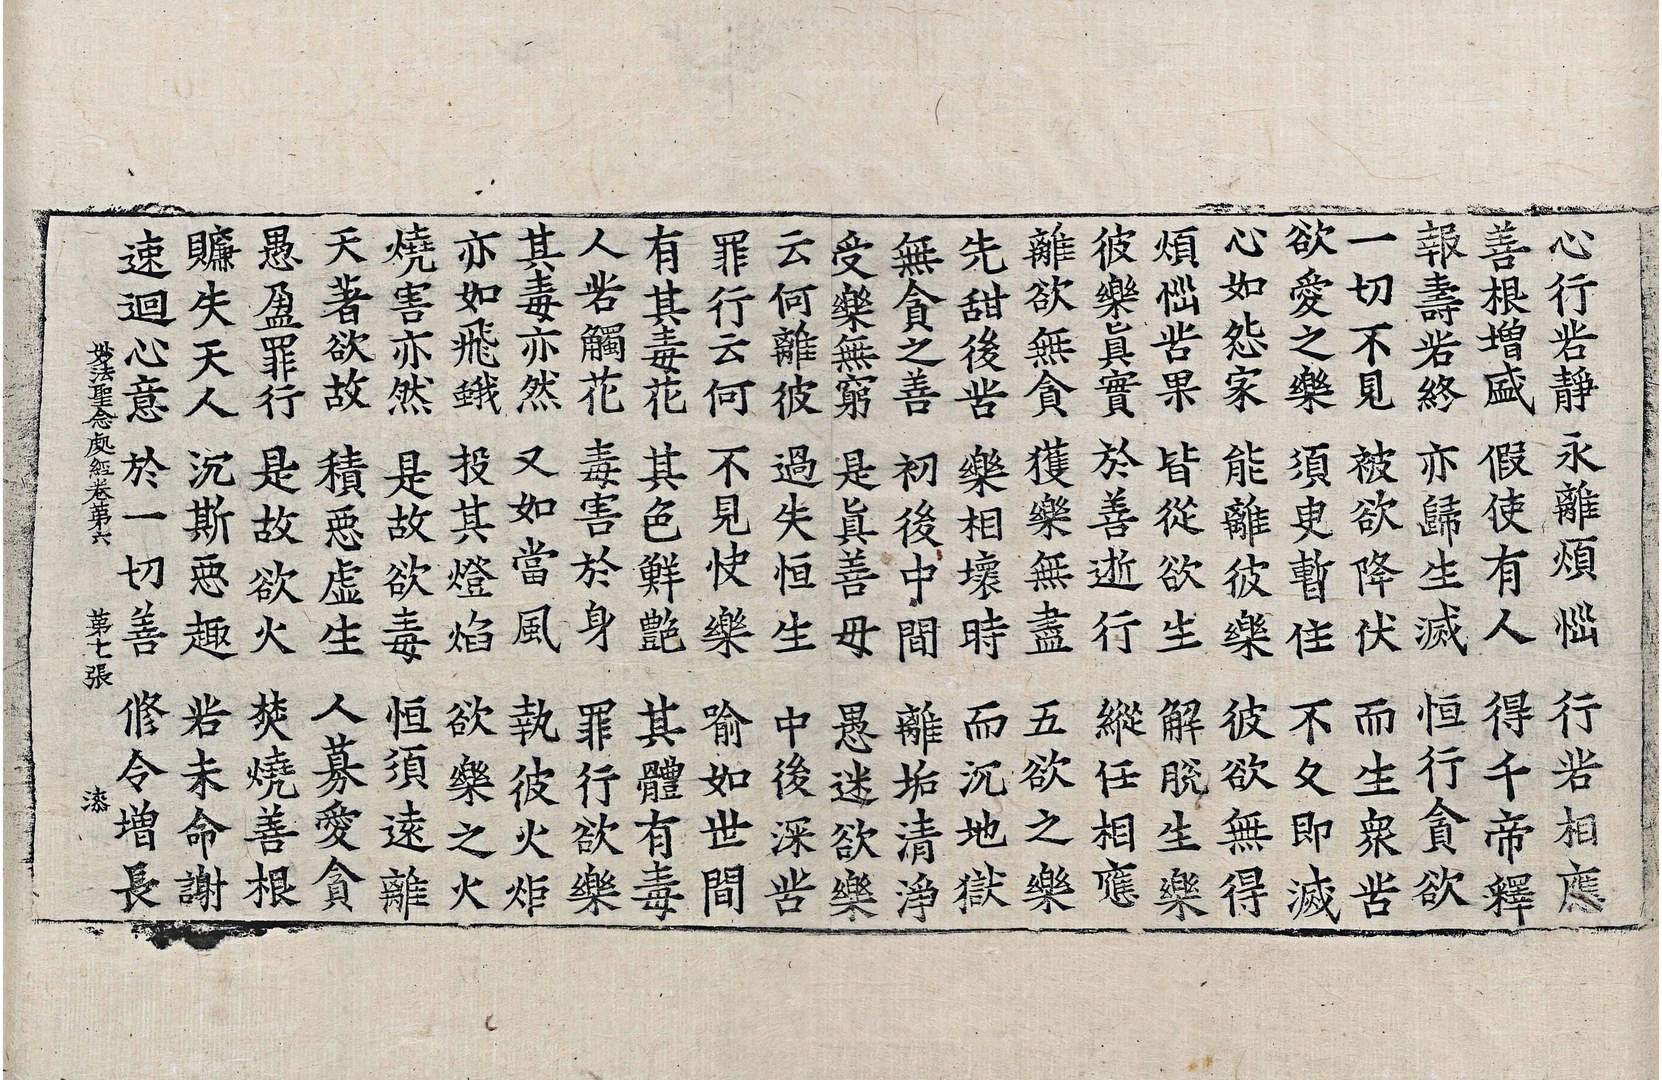 心行若靜 永離煩惱 行若相應
善根增盛 假使有人 得千帝釋
報壽若終 亦歸生滅 恒行貪欲
一切不見 被欲降伏 而生衆苦
欲愛之樂 須臾暫住 不久即滅
心如怨家 能離彼樂 彼欲無得
煩惱苦果 皆從欲生 解脫生樂
彼樂眞實 於善逝行 縱任相應
離欲無貪 獲樂無盡 五欲之樂
先甜後苦 樂相壞時 而沉地獄
無貪之善 初後中間 離垢清淨
受樂無窮 是眞善母 愚迷欲樂
云何離彼 過失恒生 中後深苦
罪行云何 不見快樂 喻如世間
有其毒花 其色鮮艶 其體有毒
人若觸花 毒害於身 罪行欲樂
其毒亦然 又如當風 執彼火炬
亦如飛蛾 投其燈焰 欲樂之火
燒害亦然 是故欲毒 恒須遠離
天著欲故 積惡虛生 人募愛貪
愚盈罪行 是故欲火 焚燒善根
賺失天人 沉斯惡趣 若未命謝
速迴心意 於一切善 修令增長
妙法聖念處經卷第六 第七張 漆